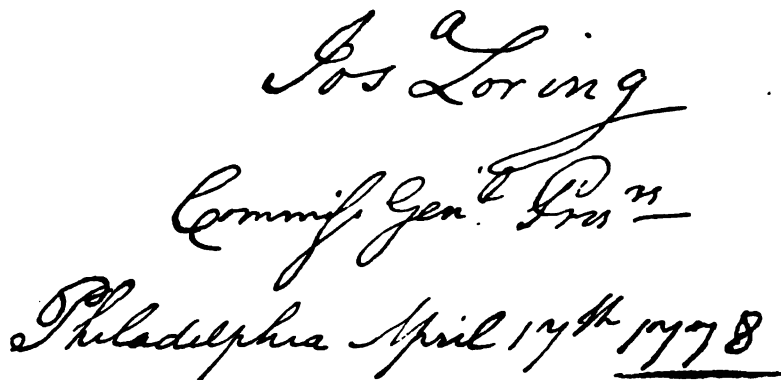 Josᵃ Loring
Commiſs. Genˡ. Prisⁿˢ
Philadelphia April 17th 1778